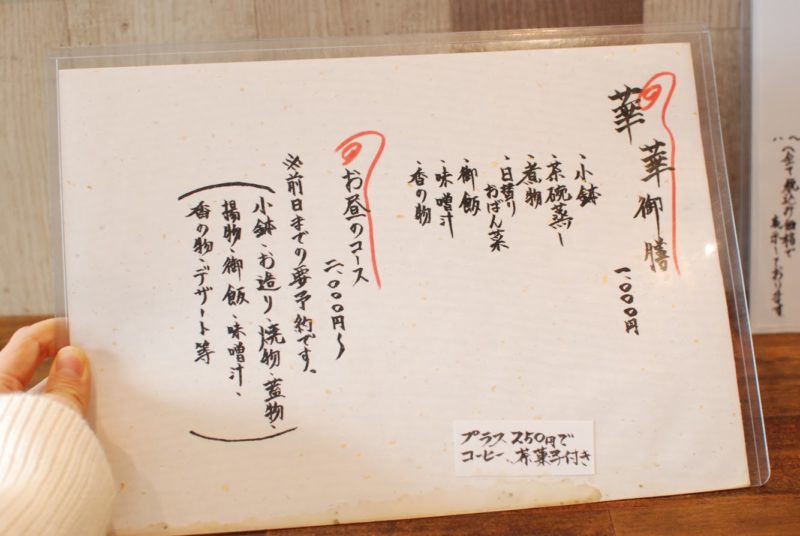 華華御膳
一、〇〇〇円
・小鉢
・茶碗蒸し
・煮物
・日替り
おばん菜
・御飯
・味噌汁
・香の物
お昼のコース
二、〇〇〇円〜
※前日までの要予約です。
(小鉢、お造り、焼物、蓋物、
揚物、御飯、味噌汁、
香の物、デザート等)
プラス250円で
コーヒー、茶菓子付き
全て税込み価格で